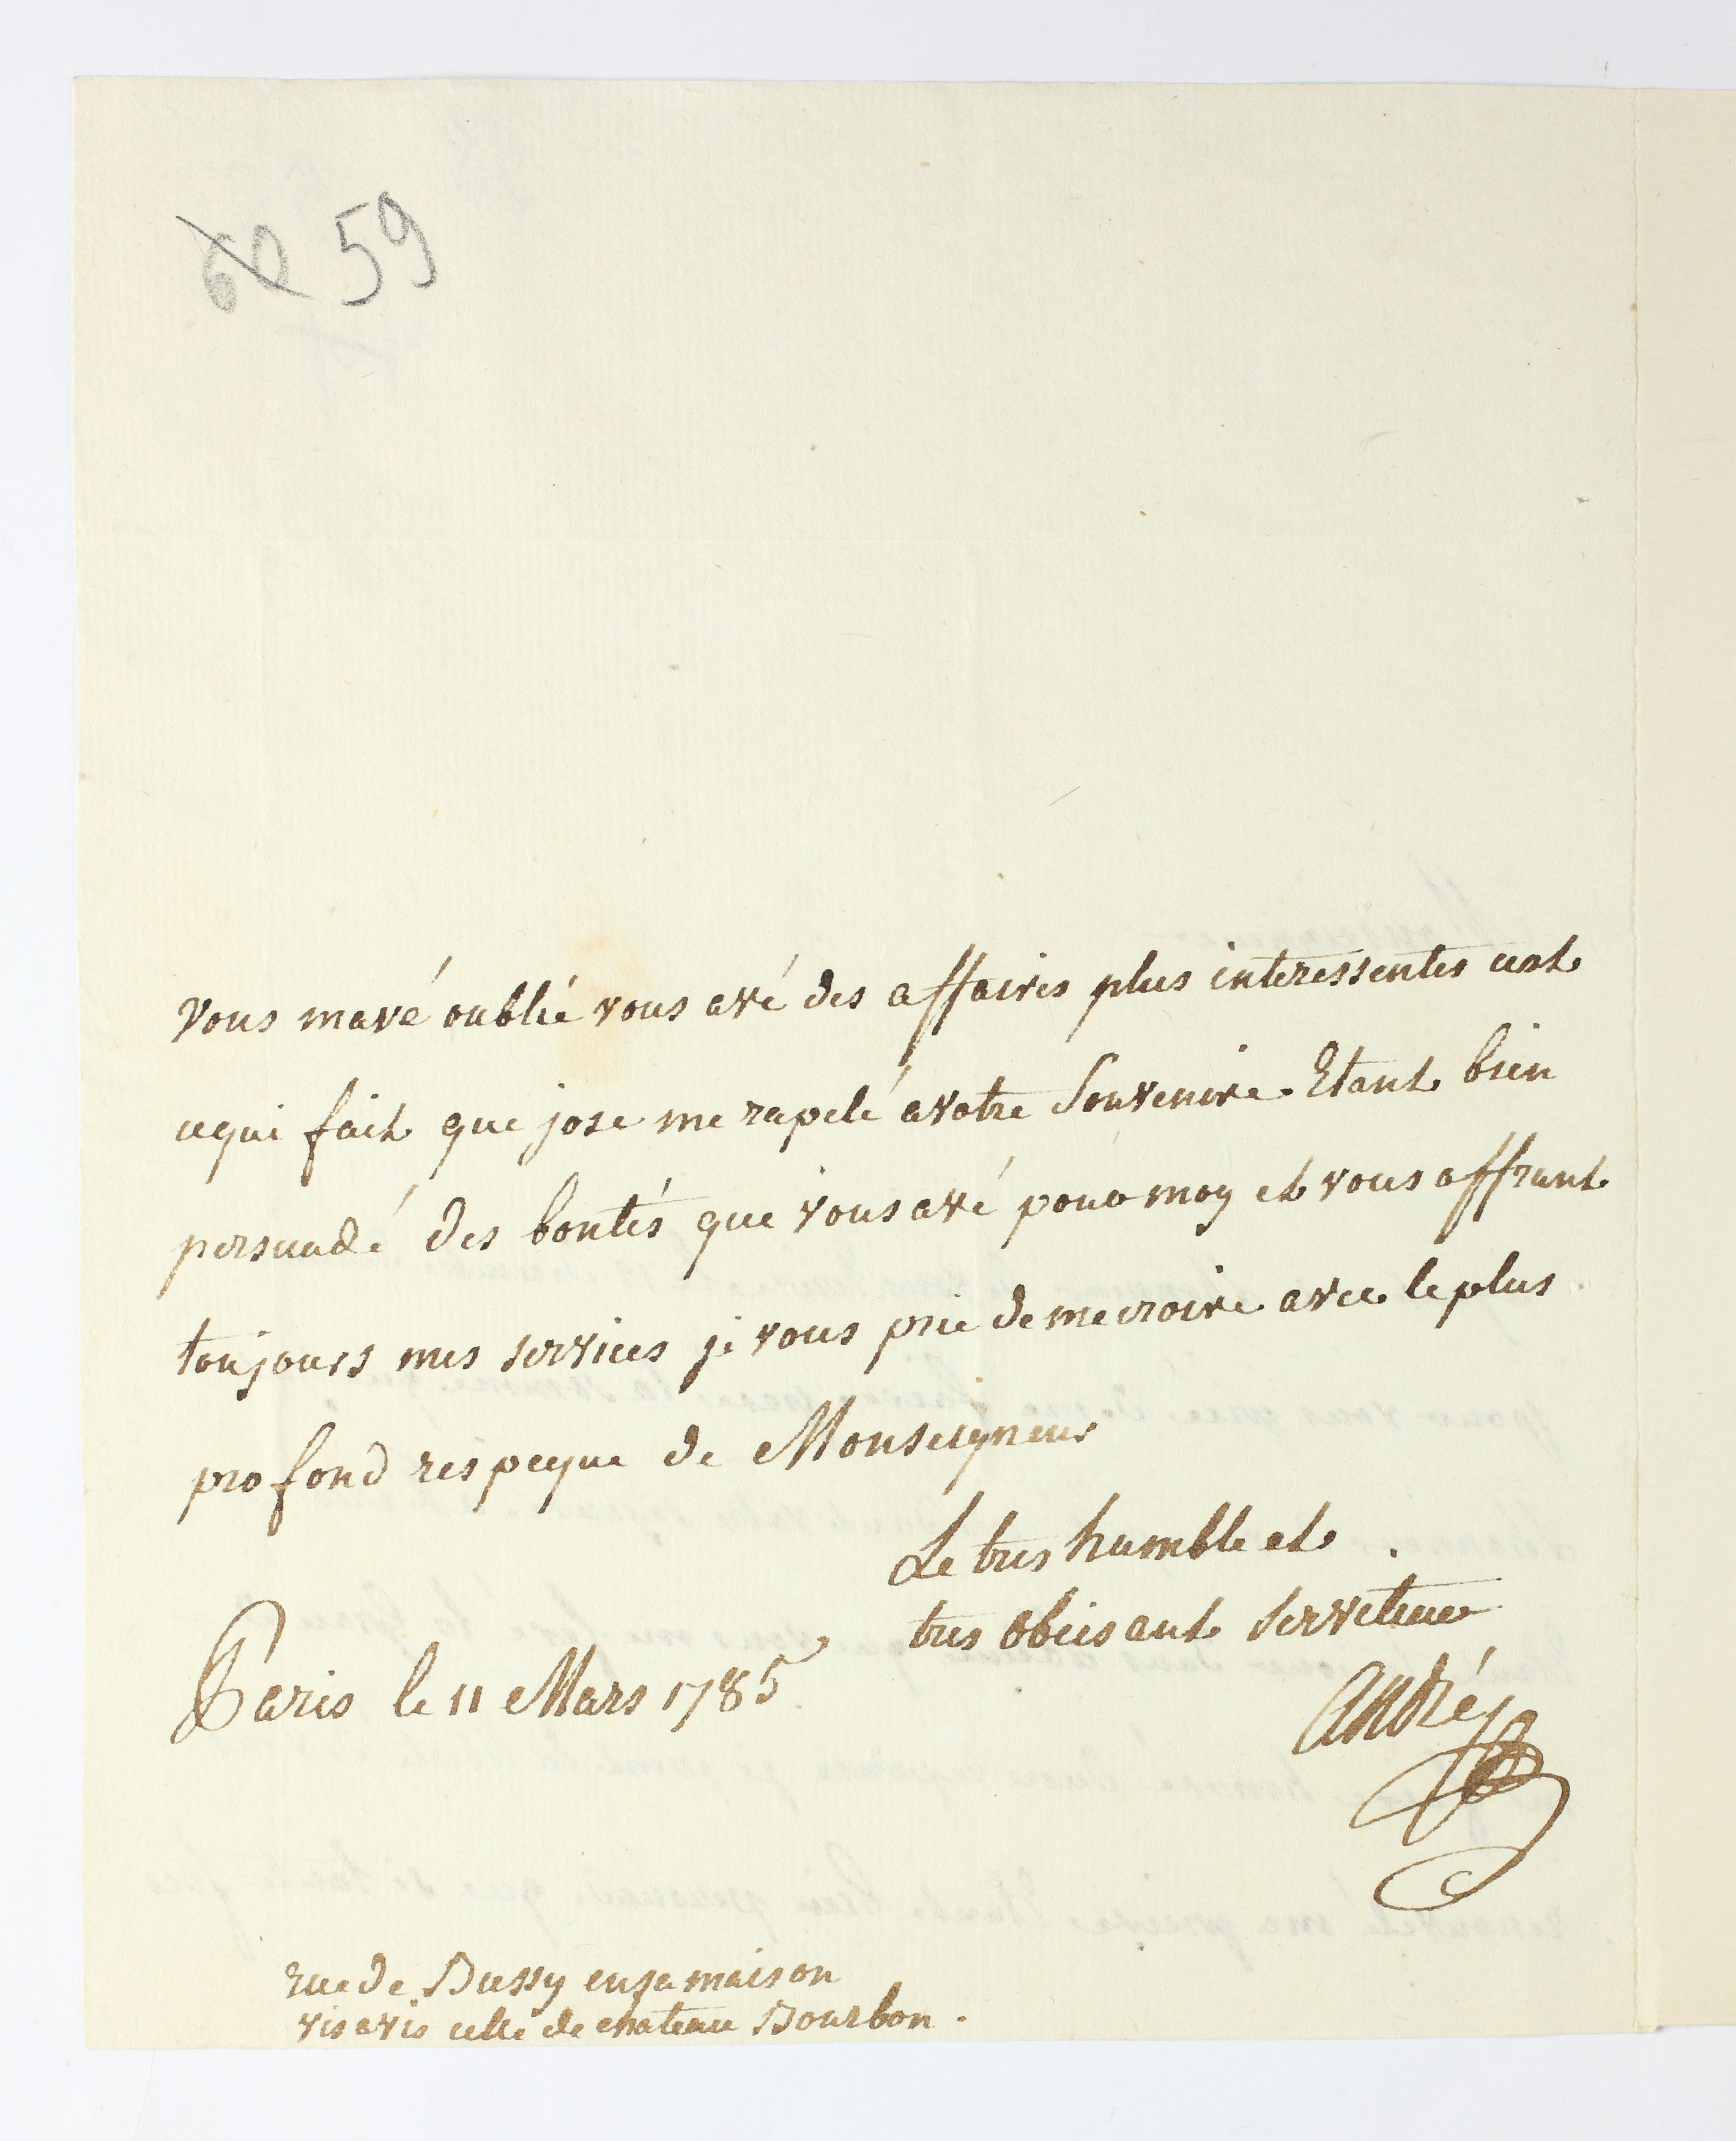 60 59
vous mavé oublié vous avé des affaires plus interessentes cest
cequi fait que jose me rapelé avotre souvenire. Etant bien
persuadé des bontés que vous avé pour moy et vous offrant
toujours mes services je vous prie de me croire avec le plus
profond respeque de Monseigneur
Le tres humble et
tres obeisant serviteur
Paris le 11 Mars 1785
André
rue de Bussy ensa maison
vis avis celle de chateau Bourbon.